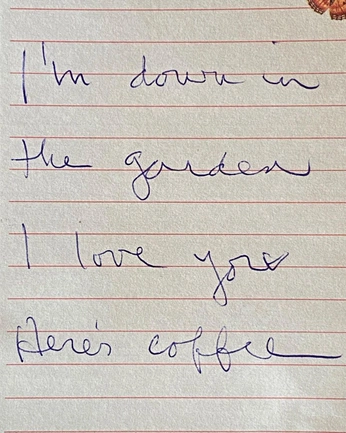 I'm down in
the garden
I love you
Here's coffee